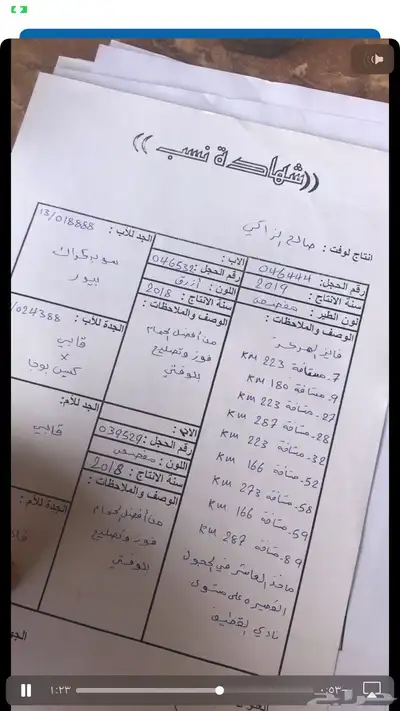 ((شهادة نسب))
انتاج لوفت : صالح الزاكي
رقم الحجل: 046444
سنة الانتاج: 2019
لون الطير: مقصص
الوصف والملاحظات:
فائز المركز
7- مسافة 223 KM
9- مسافة 180 KM
27- مسافة 223 KM
28- مسافة 287 KM
32- مسافة 223 KM
52- مسافة 166 KM
58- مسافة 273 KM
59- مسافة 166 KM
89- مسافة 287 KM
ماخذ العاشر في الحمول
القصيره على مستوى
نادي القطيف
الاب:
رقم الحجل: 046532
اللون: أزرق
سنة الانتاج: 2018
الوصف والملاحظات:
من أفضل الحمام
فوز وتصليع
اللوفتي
الام:
رقم الحجل: 039529
اللون: مقصص
سنة الانتاج: 2018
الوصف والملاحظات:
من أفضل الحمام
فوز وتصليع
اللوفتي
الجد للأب:
13/018888
سوبركراك
بيور
الجدة للأب:
/024388
قابي
×
كين بوجا
الجد للأم:
قابي
الجدة للأم:
١:٢٣
٠:٥٣-
حراج